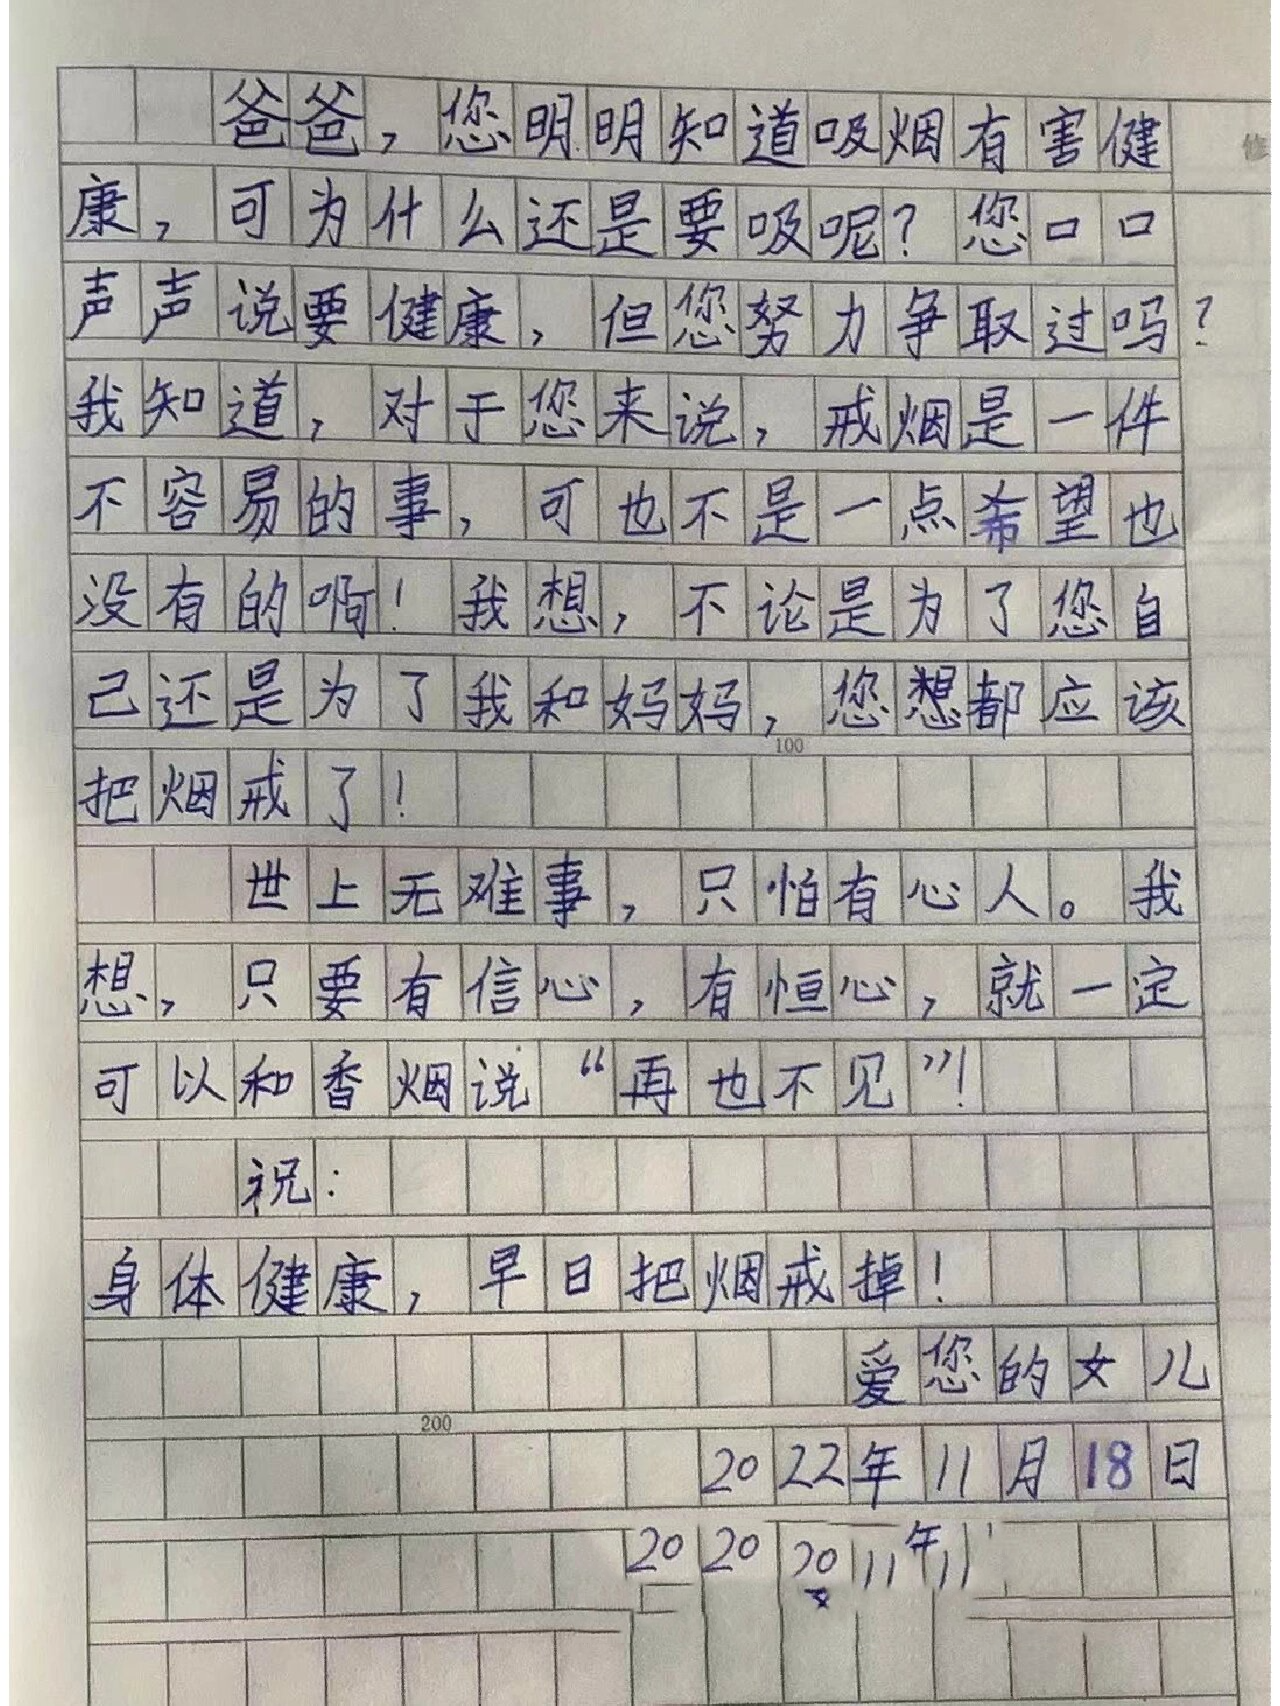 爸爸，您明明知道吸烟有害健
修
康，可为什么还是要吸呢？您口口
声声说要健康，但您努力争取过吗？
我知道，对于您来说，戒烟是一件
不容易的事，可也不是一点希望也
没有的啊！我想，不论是为了您自
己还是为了我和妈妈，您想都应该
100
把烟戒了！
世上无难事，只怕有心人。我
想，只要有信心，有恒心，就一定
可以和香烟说“再也不见”！
祝：
身体健康，早日把烟戒掉！
爱您的女儿
200
2022年11月18日
20 20 20 111年11